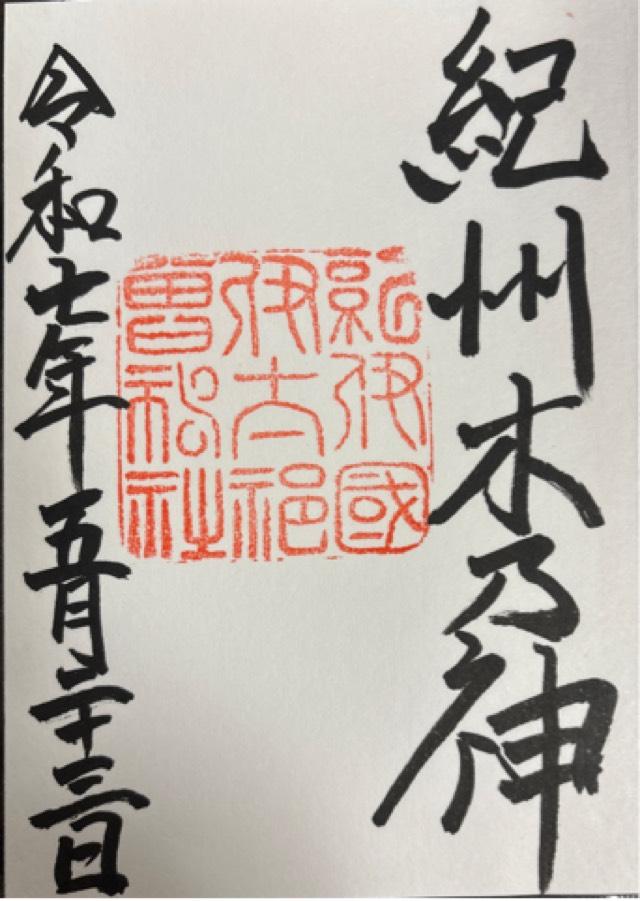 紀州木乃神
紀伊國
伊太祁
曾神社
令和七年五月二十三日